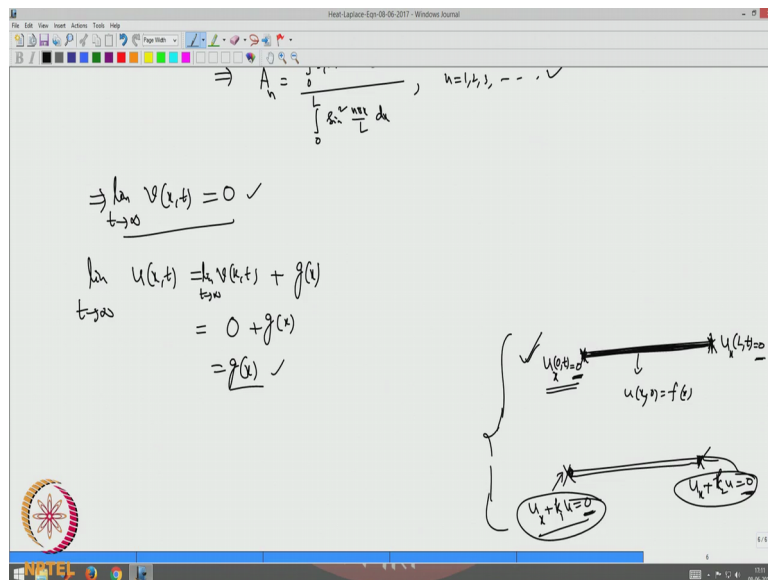 Heat-Laplace-Eqn-08-06-2017 - Windows Journal
File Edit View Insert Actions Tools Help
Page Width
B I
⇒ A_n = ∫_0 / ∫_0^L sin² nπx/L dx , n=1,2,3, - - - . ✓
⇒ lim_{t→∞} v(x,t) = 0 ✓
lim_{t→∞} u(x,t) = lim_{t→∞} v(x,t) + g(x)
= 0 + g(x)
= g(x) ✓
✓ u_x(0,t)=0
u_x(L,t)=0
u(x,0)=f(x)
u_x+k_1u=0
u_x+k_2u=0
6/6
6
NPTEL
11:11